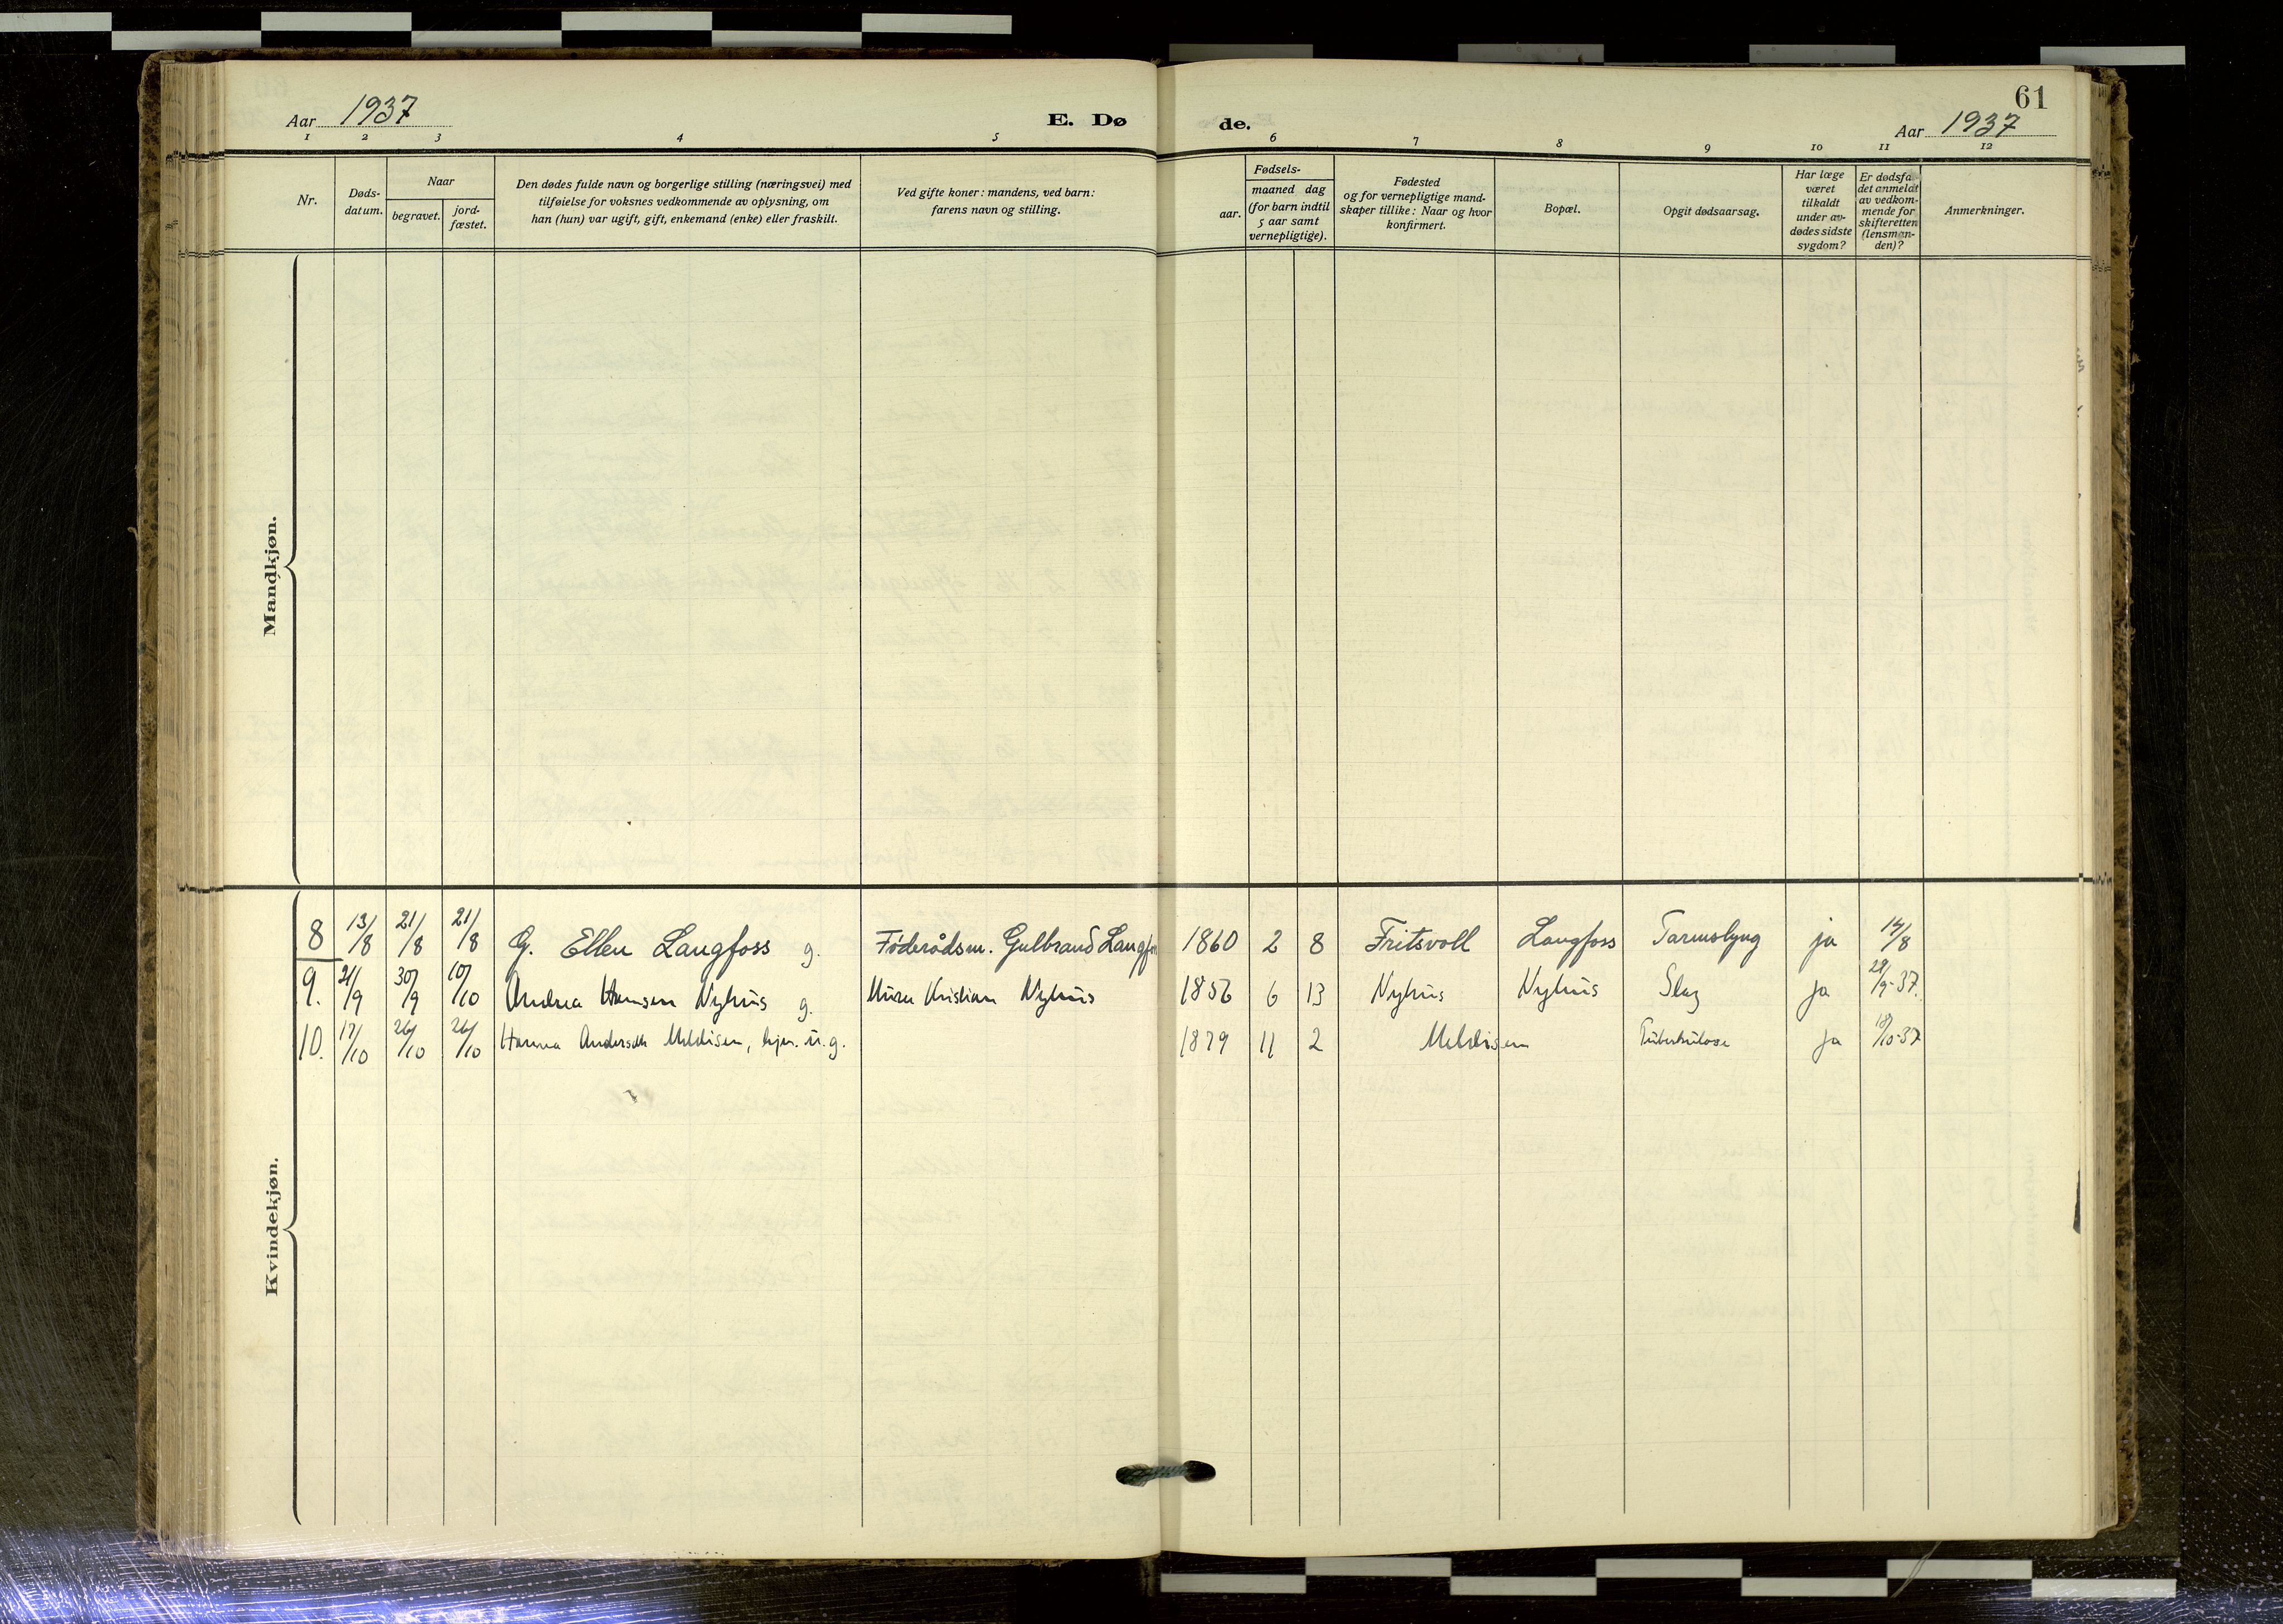 61
Aar 1937
E. Dø
de.
Aar 1937
1 2 3 4 5 6 7 8 9 10 11 12
Nr.
Døds-
datum.
Naar
begravet.
jord-
fæstet.
Den dødes fulde navn og borgerlige stilling (næringsvei) med
tilføielse for voksnes vedkommende av oplysning, om
han (hun) var ugift, gift, enkemand (enke) eller fraskilt.
Ved gifte koner: mandens, ved barn:
farens navn og stilling.
Fødsels-
aar.
maaned dag
(for barn indtil
5 aar samt
vernepligtige).
Fødested
og for vernepligtige mand-
skaper tillike: Naar og hvor
konfirmert.
Bopæl.
Opgit dødsaarsag.
Har læge
været
tilkaldt
under av-
dødes sidste
sygdom?
Er dødsfal-
det anmeldt
av vedkom-
mende for
skifteretten
(lensman-
den)?
Anmerkninger.
Mandkjøn.
Kvindekjøn.
8 13/8 21/8 21/8 G. Ellen Langfoss g. Föderådsm. Gulbrand Langfoss 1860 2 8 Fritsvoll Langfoss Tarmslyng ja 14/8
9. 21/9 30/9 10/10 Andrea Hansen Nyhus g. Murer Kristian Nyhus 1856 6 13 Nyhus Nyhus Slag ja 29/9-37.
10. 17/10 26/10 26/10 Hanna Andersdtr u.g. 1879 11 2 Tuberkulose ja 18/10-37